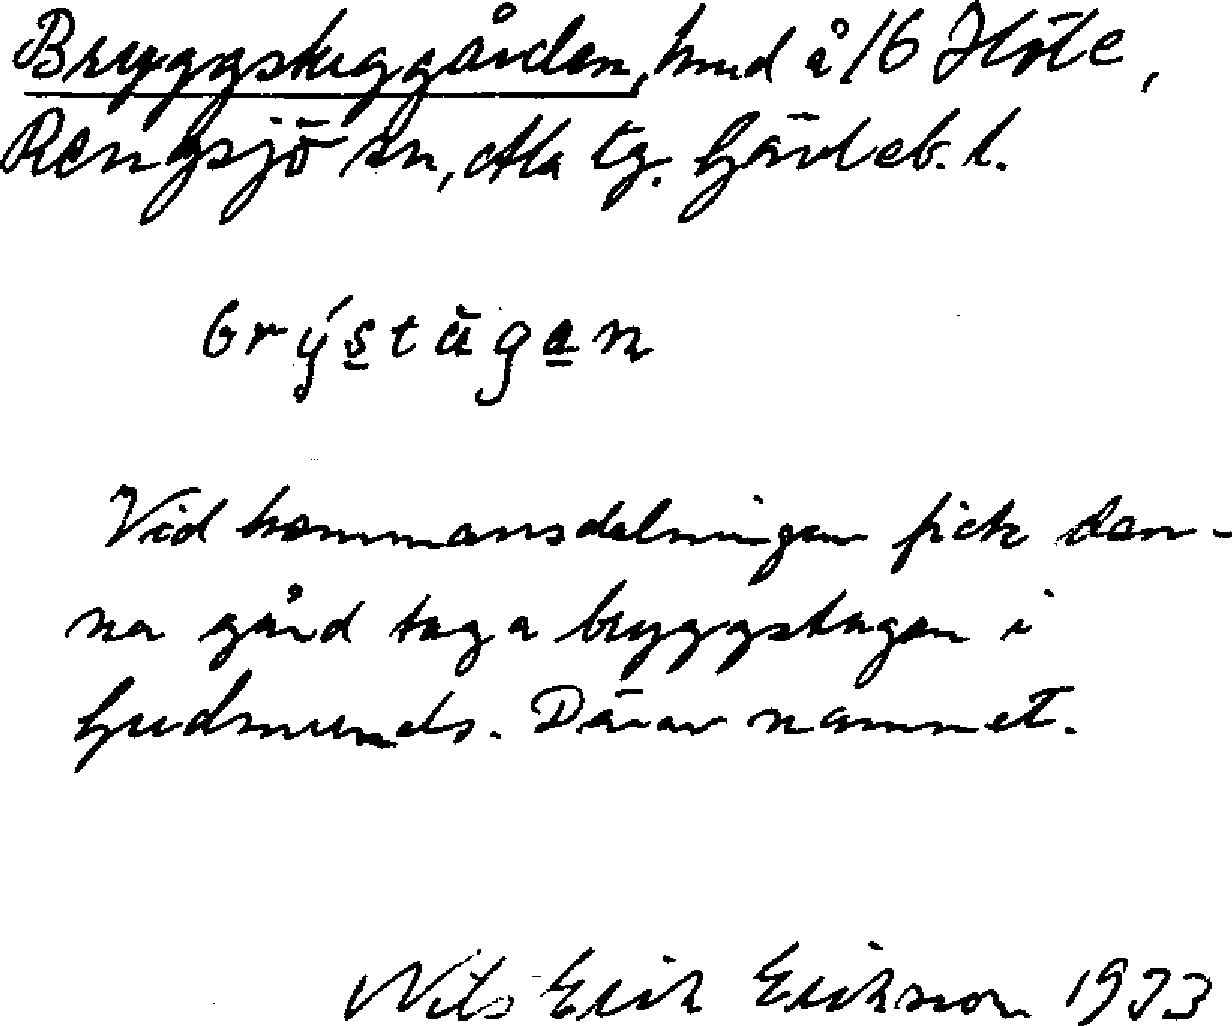 Bryggstuggården, hmd å 16 Höle,
Rengsjö sn, Ala tg. Gävleb. l.
brýstùgan
Vid hemmansdelningen fick den-
na gård taga bryggstugan i
Gudmunds. Därav namnet.
Nils Erik Erikson 1933